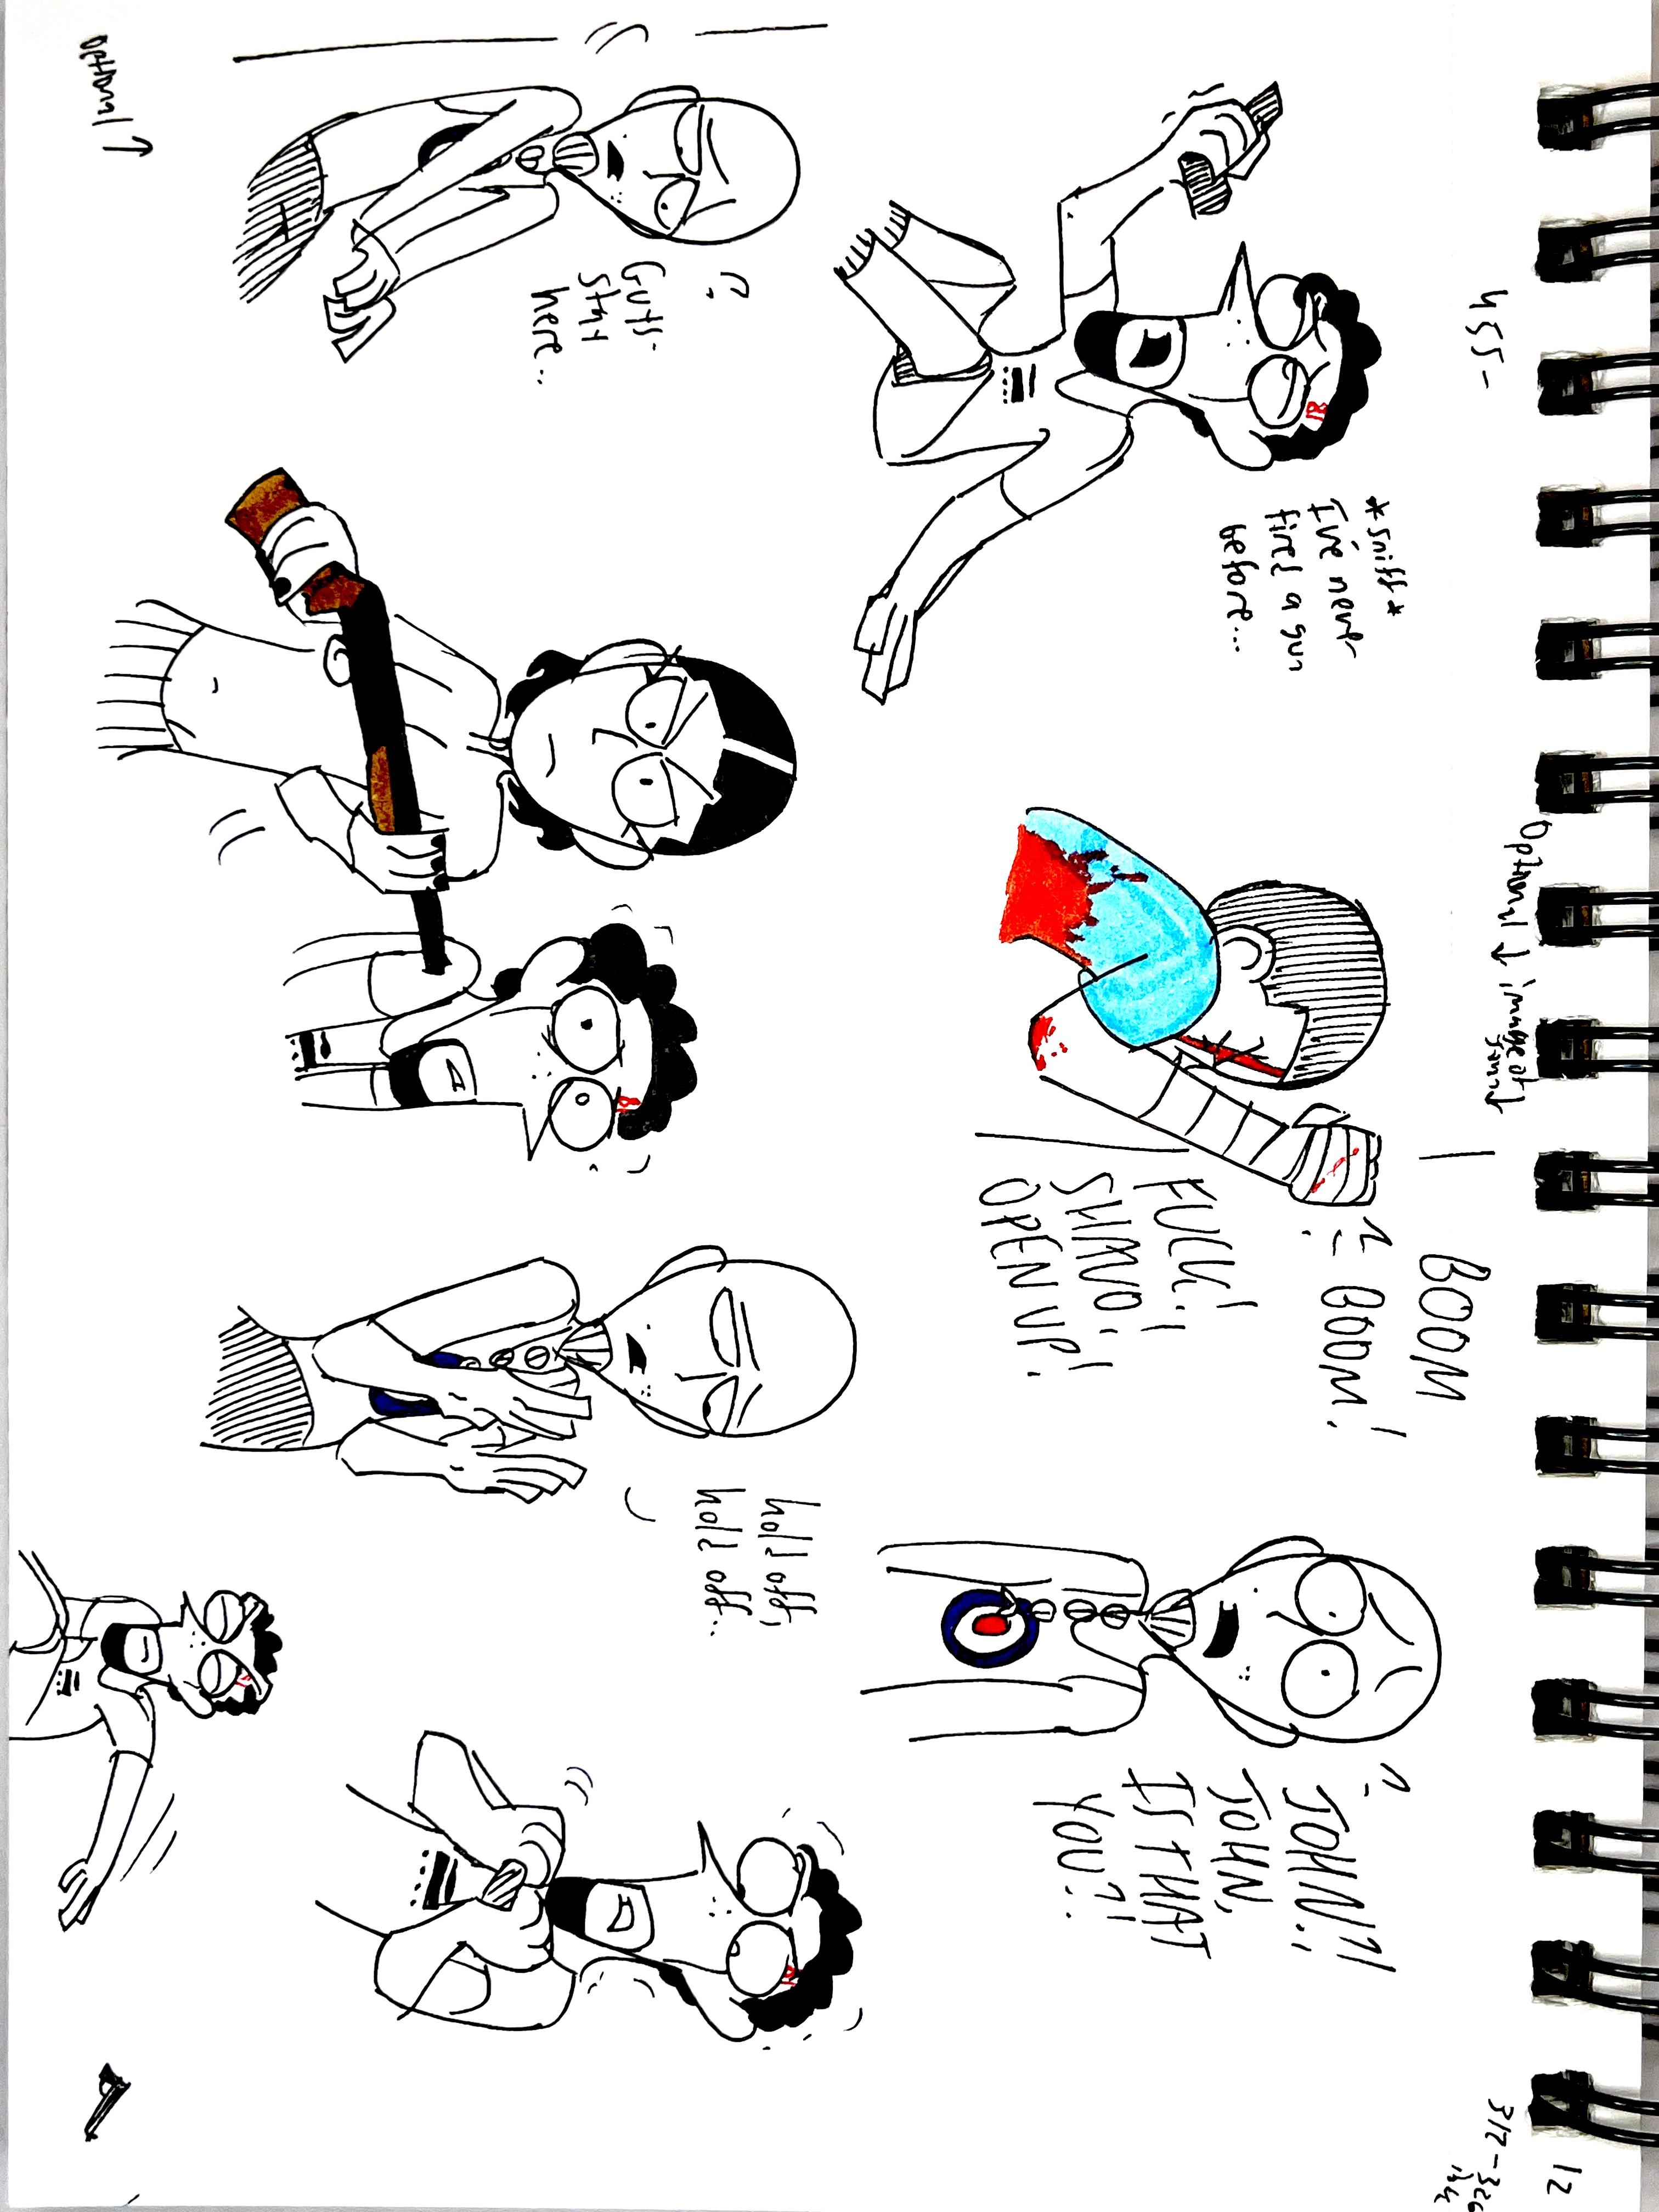 12
312-326
455-
Optional ↓ image of
John ↓
*sniff*
I've never
fired a gun
before...
BOOM
BOOM!
FUCK!
SHAVO!
OPEN UP!
JOHN?!
JOHN,
IS THAT
YOU?!
Guys-
stay
here..
hold off,
hold off..
optional ↑